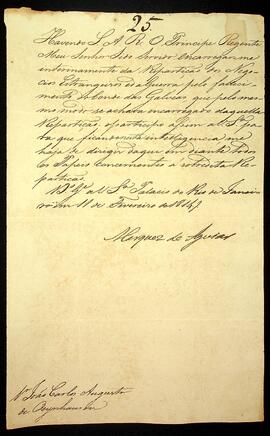 25
Havendo S. A. R. O Principe Regente
Meu Senhor Sido Servido encarregar-me
interinamente da Repartição dos Negocios
Estrangeiros e da Guerra pelo falecimento
do Conde das Galveas que pelo mesmo
modo se achava encarregado daquella
Repartição, o participo a
para que ficando n'esta intelligencia me
haja de dirigir daqui em diante todos
os Papeis concernentes á sobredita Repartição.
D.s G.e a V. S.a Palacio do Rio de Janeiro
em 11 de Fevereiro de 1814
Marquez de Aguiar
S.r João Carlos Augusto
de Oeynhausen